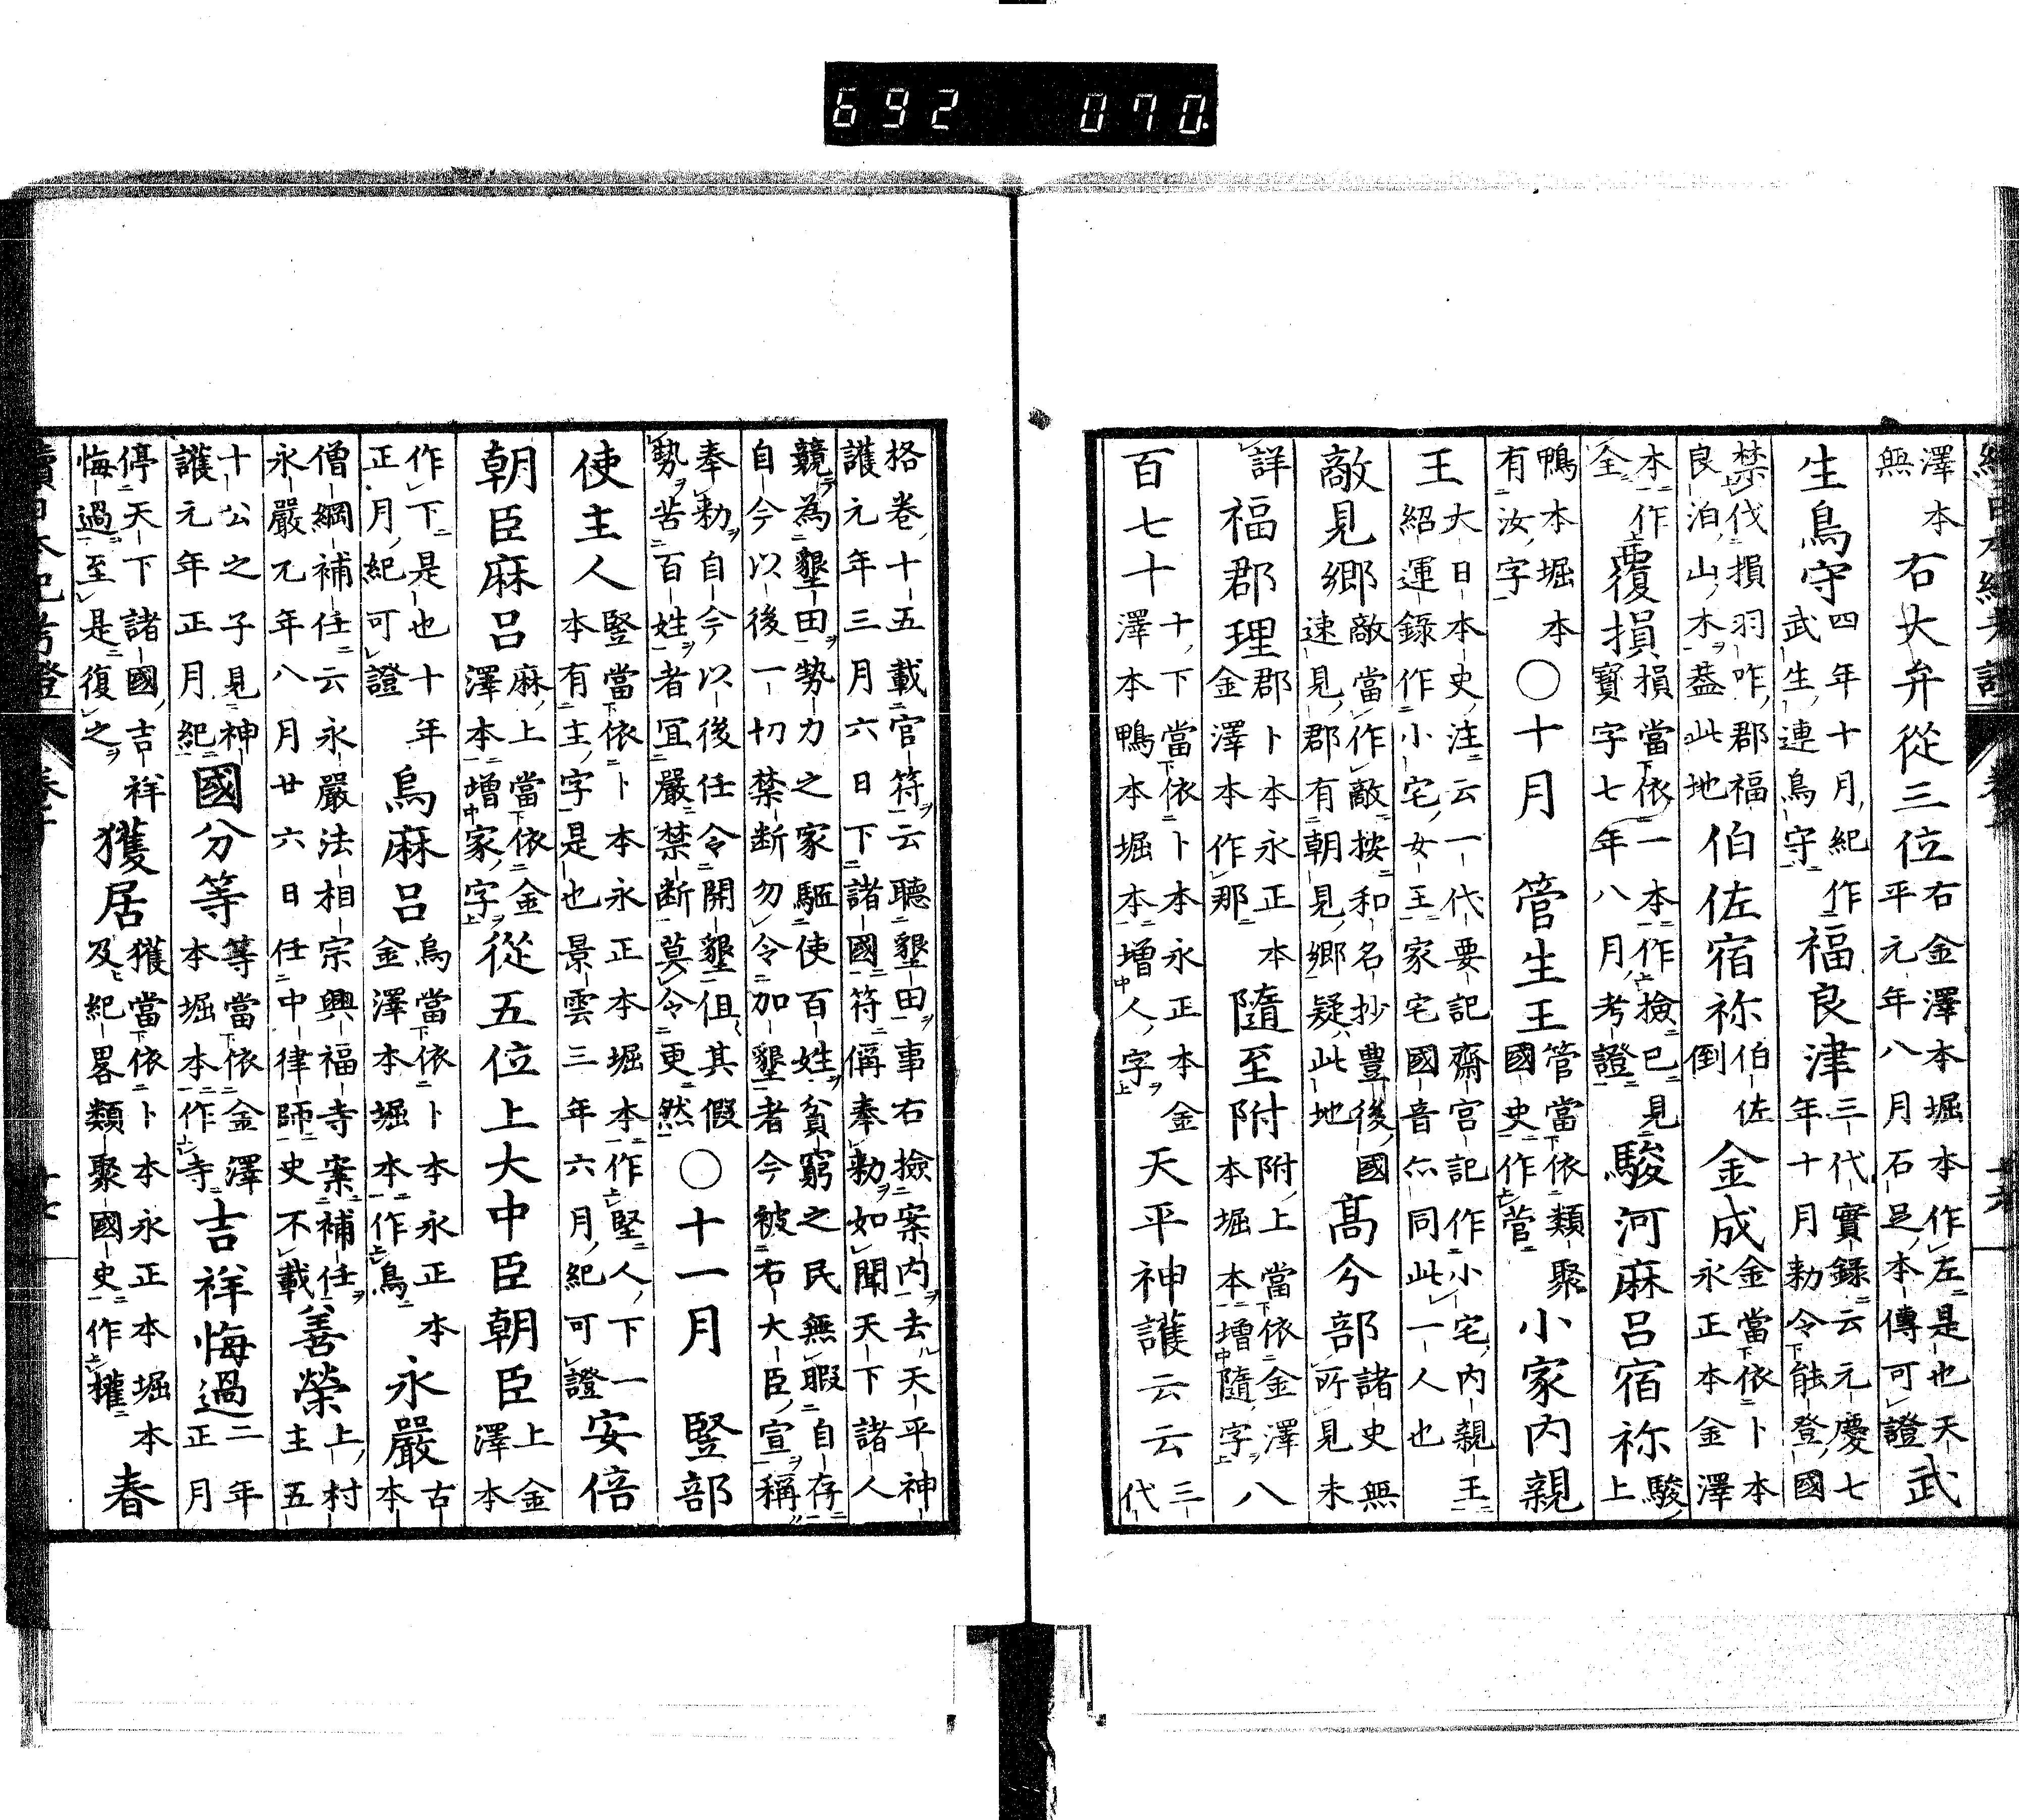 692 070
澤本無右大弁從三位右金澤本堀本作左是也天平元年八月石足本傳可證武
生鳥守四年十月紀作武生連鳥守福良津三代實録云元慶七年十月勅令能登國
禁伐損羽咋郡福良泊山木蓋此地伯佐宿祢伯佐倒金成金當依卜本永正本金澤
本作全覆損損當依一本作撿已見寶字七年八月考證駿河麻呂宿祢駿上
鴨本堀本有汝字○十月管生王管當依類聚國史作菅小家内親
王大日本史注云一代要記齋宮記作小宅内親王紹運録作小宅女王家宅國音亦同此一人也
敵見鄉敵當作敵按和名抄豐後國速見郡有朝見鄉疑此地髙兮部諸史無所見未
詳福郡理郡卜本永正本金澤本作那隨至附附上當依金澤本堀本增隨字八
百七十十下當依卜本永正本金澤本鴨本堀本增人字天平神護云云三代
格卷十五載官符云聽墾田事右撿案内去天平神護元年三月六日下諸國符偁奉勅如聞天下諸人
競為墾田勢力之家駈使百姓貧窮之民無暇自存自今以後一切禁断勿令加墾者今被右大臣宣稱
奉勅自今以後任令開墾但其假勢苦百姓者冝嚴禁断莫令更然○十一月豎部
使主人豎當依卜本永正本堀本作竪人下一本有主字是也景雲三年六月紀可證安倍
朝臣麻呂麻上當依金澤本增家字從五位上大中臣朝臣上金澤本
作下是也十年正月紀可證烏麻呂烏當依卜本永正本金澤本堀本作鳥永嚴古本
僧綱補任云永嚴法相宗興福寺案補任永嚴元年八月廿六日任中律師史不載善榮上村主五
十公之子見神護元年正月紀國分等等當依金澤本堀本作寺吉祥悔過二年正月
停天下諸國吉祥悔過至是復之獲居獲當依卜本永正本堀本及紀畧類聚國史作㩲春